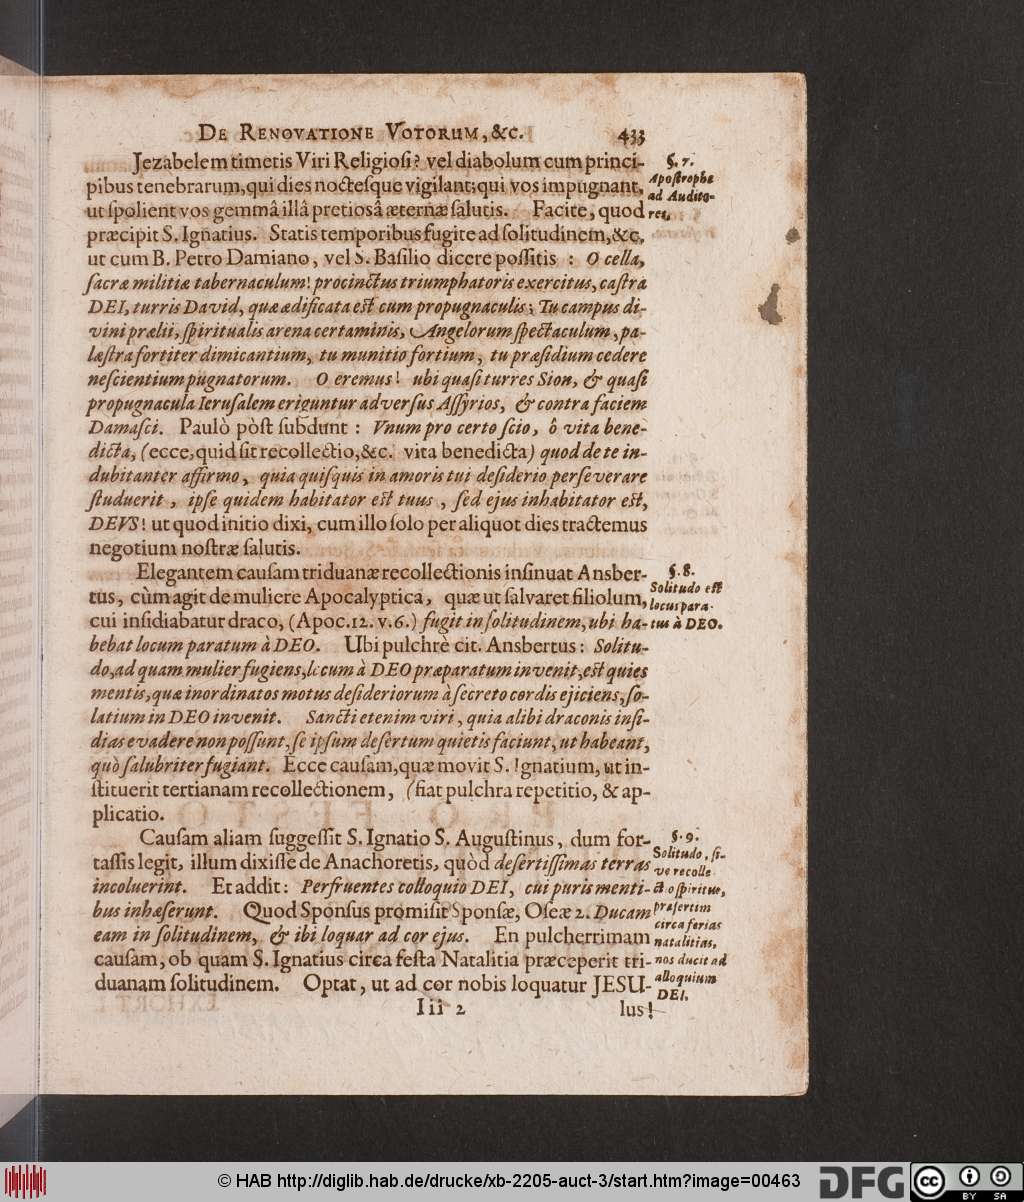 De Renovatione Votorum, &c. 433
Jezabelem timetis Viri Religiosi? vel diabolum cum princi-
pibus tenebrarum, qui dies noctesque vigilant; qui vos impugnant,
ut spolient vos gemmâ illâ pretiosâ æternæ salutis. Facite, quod
præcipit S. Ignatius. Statis temporibus fugite ad solitudinem, &c,
ut cum B. Petro Damiano, vel S. Basilio dicere possitis : O cella,
sacræ militiæ tabernaculum! procinctus triumphatoris exercitus, castra
DEI, turris David, quæ ædificata est cum propugnaculis; Tu campus di-
vini prælii, spiritualis arena certaminis, Angelorum spectaculum, pa-
læstra fortiter dimicantium, tu munitio fortium, tu præsidium cedere
nescientium pugnatorum. O eremus! ubi quasi turres Sion, & quasi
propugnacula Ierusalem eriguntur adversus Assyrios, & contra faciem
Damasci. Paulò pòst subdunt : Vnum pro certo scio, ô vita bene-
dicta, (ecce, quid sit recollectio, &c. vita benedicta) quod de te in-
dubitanter affirmo, quia quisquis in amoris tui desiderio perseverare
studuerit, ipse quidem habitator est tuus, sed ejus inhabitator est,
DEVS! ut quod initio dixi, cum illo solo per aliquot dies tractemus
negotium nostræ salutis.
§. 7.
Apostrophe
ad Audito-
res.
Elegantem causam triduanæ recollectionis insinuat Ansber-
tus, cùm agit de muliere Apocalyptica, quæ ut salvaret filiolum,
cui insidiabatur draco, (Apoc. 12. v. 6.) fugit in solitudinem, ubi ha-
bebat locum paratum à DEO. Ubi pulchrè cit. Ansbertus: Solitu-
do, ad quam mulier fugiens, locum à DEO præparatum invenit, est quies
mentis, quæ inordinatos motus desideriorum à secreto cordis ejiciens, so-
latium in DEO invenit. Sancti etenim viri, quia alibi draconis insi-
dias evadere non possunt, se ipsum desertum quietis faciunt, ut habeant,
quò salubriter fugiant. Ecce causam, quæ movit S. Ignatium, ut in-
stituerit tertianam recollectionem, (fiat pulchra repetitio, & ap-
plicatio.
§. 8.
Solitudo est
locus para-
tus à DEO.
Causam aliam suggessit S. Ignatio S. Augustinus, dum for-
tassis legit, illum dixisse de Anachoretis, quòd desertissimas terras
incoluerint. Et addit: Perfruentes colloquio DEI, cui puris menti-
bus inhæserunt. Quod Sponsus promisit Sponsæ, Oseæ 2. Ducam
eam in solitudinem, & ibi loquar ad cor ejus. En pulcherrimam
causam, ob quam S. Ignatius circa festa Natalitia præceperit tri-
duanam solitudinem. Optat, ut ad cor nobis loquatur JESU-
§. 9.
Solitudo, si-
ve recolle-
ctio spiritus,
præsertim
circa ferias
natalitias,
nos ducit ad
alloquium
DEI.
Iii 2 lus!
© HAB http://diglib.hab.de/drucke/xb-2205-auct-3/start.htm?image=00463
DFG
cc BY SA